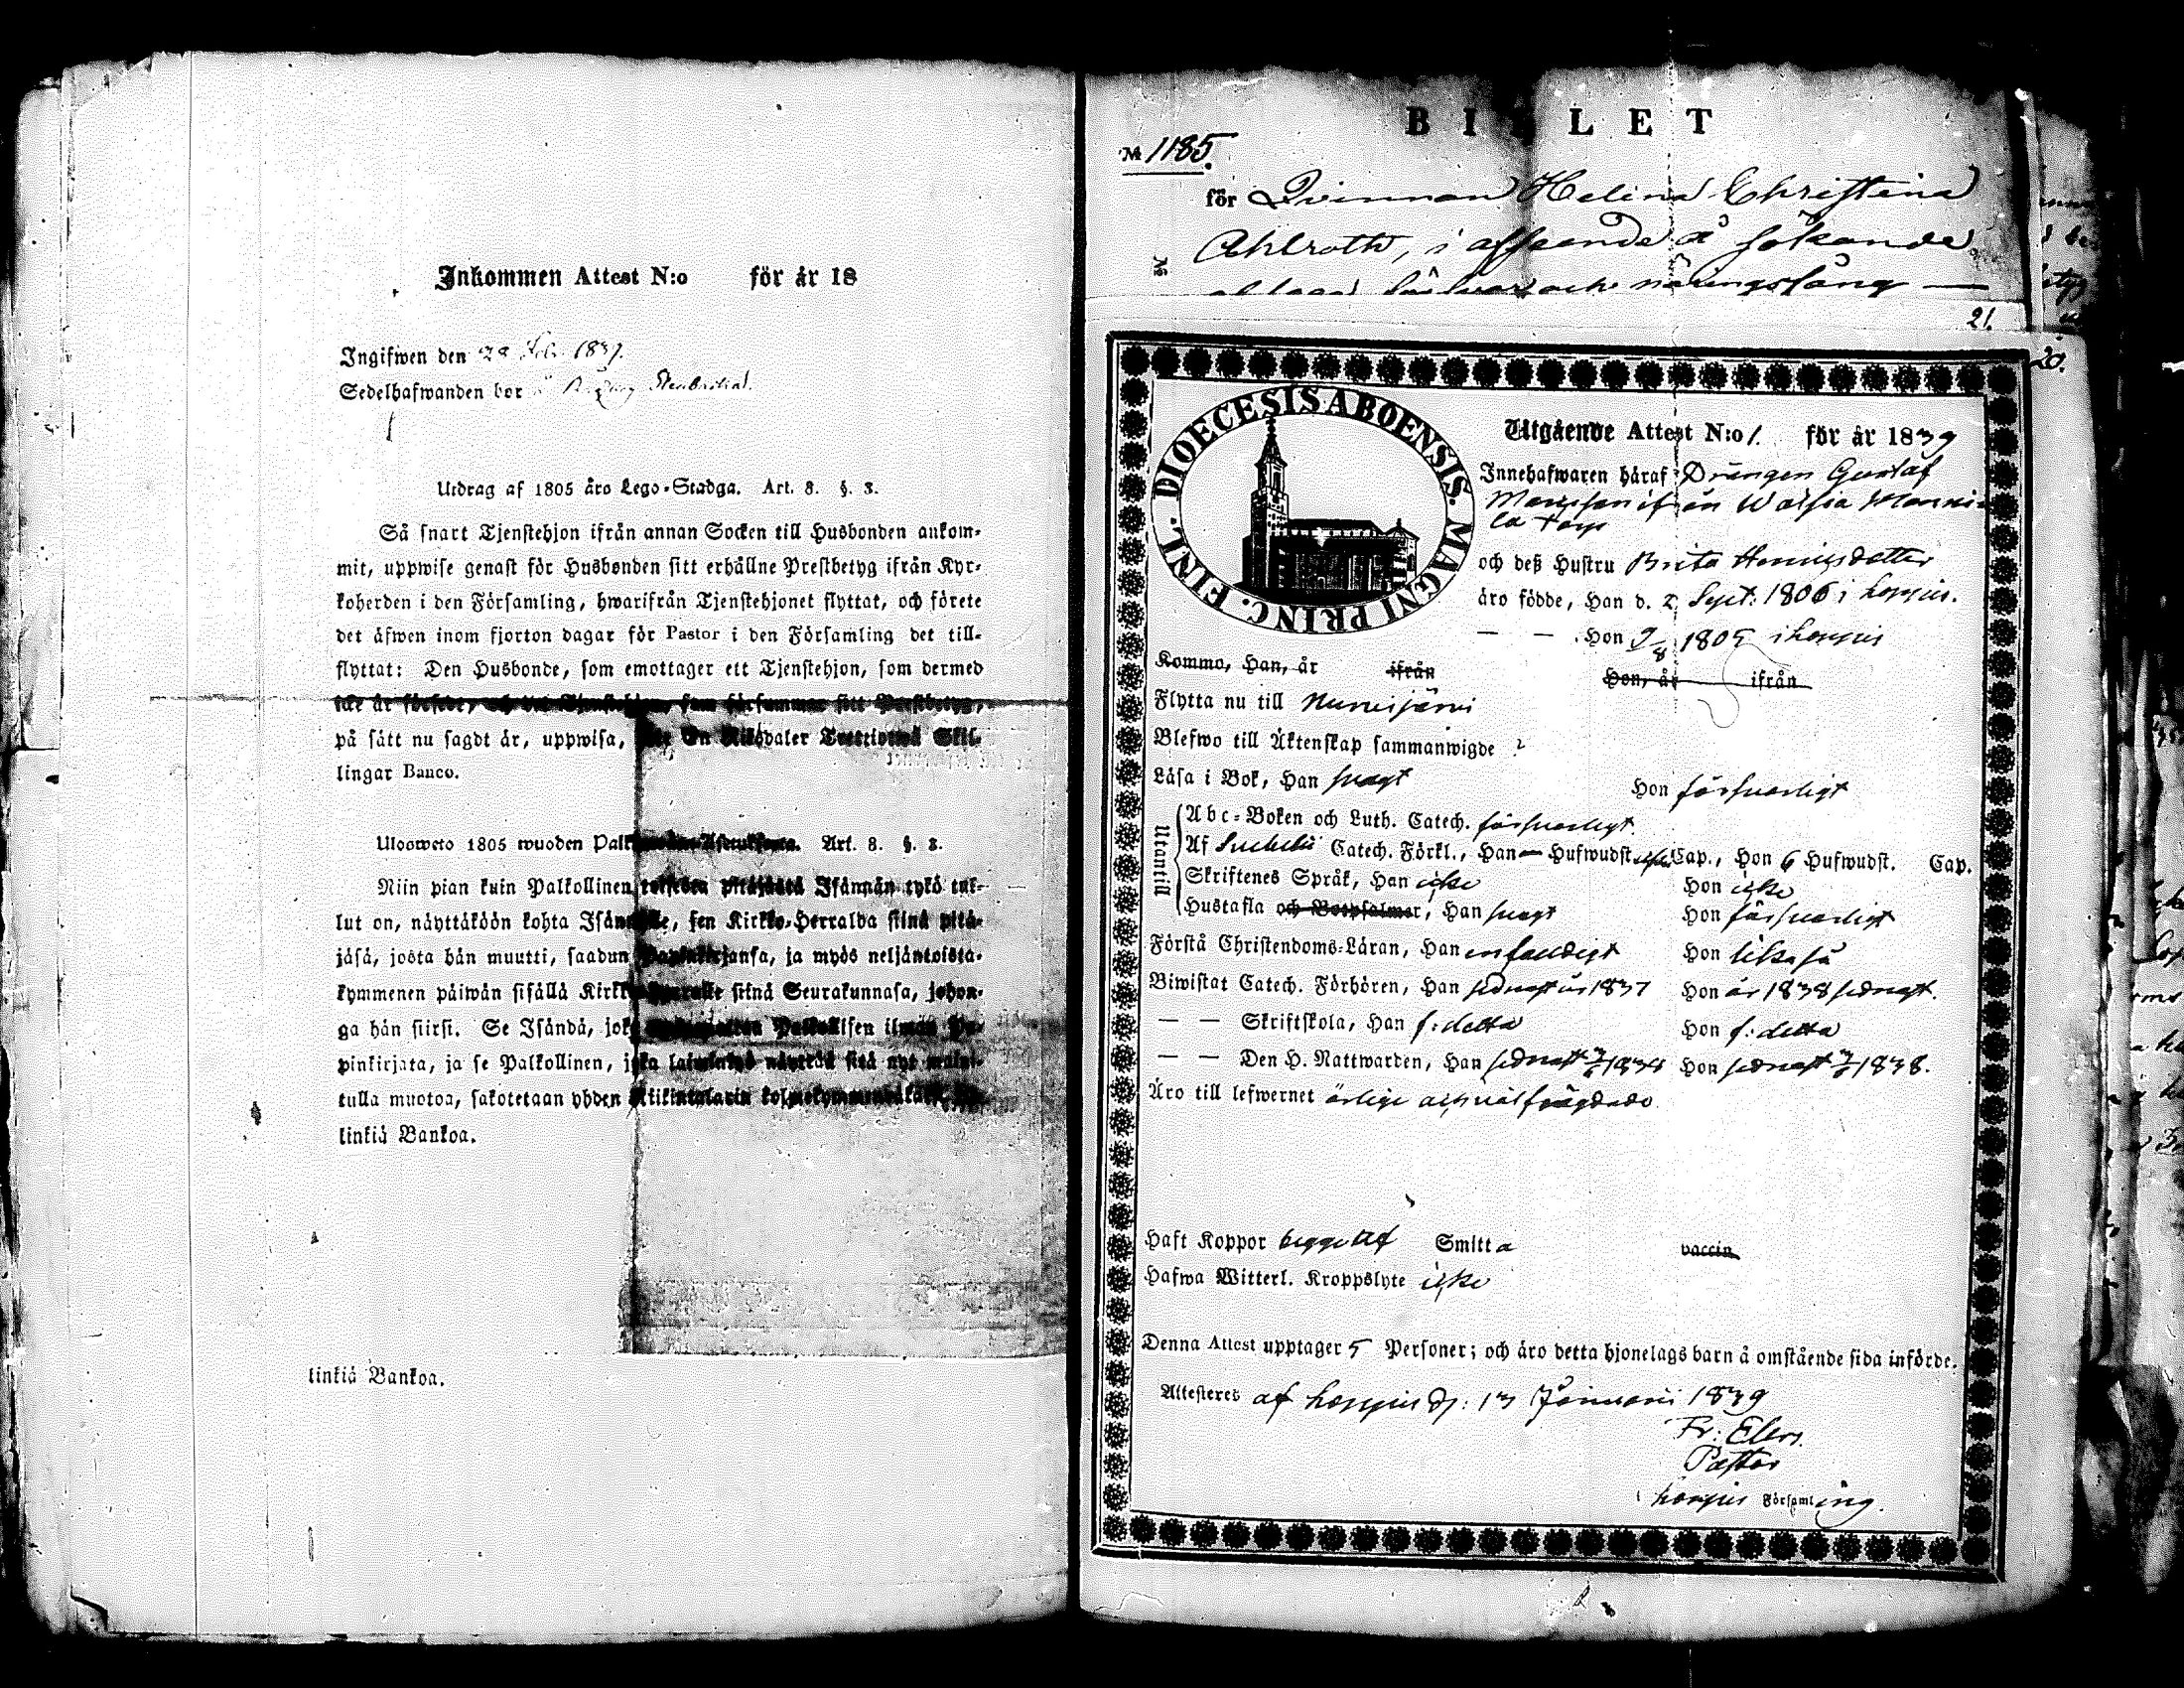 Inkommen Attest N:o för år 18
Ingifwen den 28 Febr 1839.
Sedelhafwanden bor
Utdrag af 1805 åro Lego-Stadga. Art. 8. §. 3.
Så snart Tjenstehjon ifrån annan Socken till Husbonden ankom-
mit, uppwise genast för Husbonden sitt erhållne Prestbetyg ifrån Kyr-
koherden i den Församling, hwarifrån Tjenstehjonet flyttat, och förete
det äfwen inom fjorton dagar för Pastor i den Församling det till-
flyttat: Den Husbonde, som emottager ett Tjenstehjon, som dermed
icke är försedt, och det Tjenstehjon, som försummar sitt Prestbetyg,
på sätt nu sagdt är, uppwisa, En Riksdaler Trettiotwå Skil-
lingar Banco.
Ulosweto 1805 wuoden Art. 8. §. 3.
Niin pian kuin Palkollinen toisesta pitäjästä Isännän tykö tul-
lut on, näyttäköön kohta Isännälle, sen Kirkko-Herralda siinä pitä-
jäsä, josta hän muutti, saadun Papinkirjansa, ja myös neljäntoista-
kymmenen päiwän sisällä Kirkko-Herralle siinä Seurakunnasa, johon-
ga hän siirsi. Se Isändä, joka Palkollisen ilman Pa-
pinkirjata, ja se Palkollinen, joka laiminlyö näyttää sitä nyt maini-
tulla muotoa, sakotetaan yhden Riikintalarin
linkiä Bankoa.
linkiä Bankoa.
BILLET
№ 1185.
för Qvinnan Helena Christina
Ahlroth, i afseende å sökande
näringsfång —
№
21.
20.
DIOECESIS ABOENSIS. MAGNI PRINC. FINL.
Utgående Attest N:o 1. för år 1839
Innehafwaren häraf Drängen Gustaf
ifrån
och deß Hustru Brita Henricsdotter
äro födde, Han d. 2 Sept. 1806 i Loppis.
— — . Hon 9/8 1805 i Loppis
Kommo, Han, år ifrån Hon, år ifrån
Flytta nu till Nurmijärvi
Blefwo till Äktenskap sammanwigde ?
Läsa i Bok, Han svagt Hon försvarligt
Utantill
Abc-Boken och Luth. Catech. försvarligt.
Af Svebelii Catech. Förkl., Han — Hufwudst. Cap., Hon 6 Hufwudst. Cap.
Skriftenes Språk, Han icke Hon icke
Hustafla och Botpsalmer, Han svagt Hon försvarligt
Förstå Christendoms-Läran, Han enfaldigt Hon lika så
Biwistat Catech. Förhören, Han sednast år 1837 Hon år 1838 sednast.
— — Skriftskola, Han f: detta Hon f: detta
— — Den H. Nattwarden, Han sednast 1838 Hon sednast 1838.
Äro till lefwernet ärlige och väl frägdade
Haft Koppor begge Smitta vaccin
Hafwa Witterl. Kroppslyte icke
Denna Attest upptager 5 Personer; och äro detta hjonelags barn å omstående sida införde.
Attesteres af Loppis d: 13 Januarii 1839
Fr: Elers.
Pastor
i Loppis Församling.